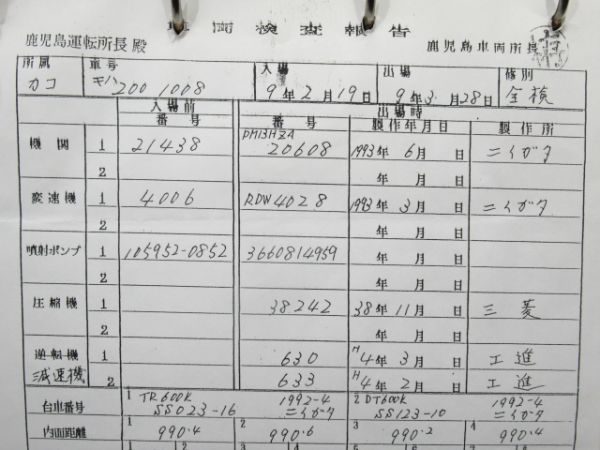 車両検査報告
鹿児島運転所長 殿 鹿児島車両所長
所属 車号 入場 出場 修別
カコ キハ200 1008 9年2月19日 9年3月28日 全検
入場前 出場時
番号 番号 製作年月日 製作所
機関 1 21438 DMF13HZA 20608 1993年6月 日 ニイガタ
2 年 月 日
変速機 1 4006 RDW4028 1993年3月 日 ニイガタ
2 年 月 日
噴射ポンプ 1 105952-0852 3660814959 年 月 日
2 年 月 日
圧縮機 1 38242 38年11月 日 三菱
2 年 月 日
逆転機 1 630 H4年3月 日 工進
減速機 2 633 H4年2月 日 工進
台車番号 1 TR600K 1992-4 2 DT600K 1992-4
SS023-16 ニイガタ SS123-10 ニイガタ
内面距離 1 990.4 2 990.6 3 990.2 4 990.4